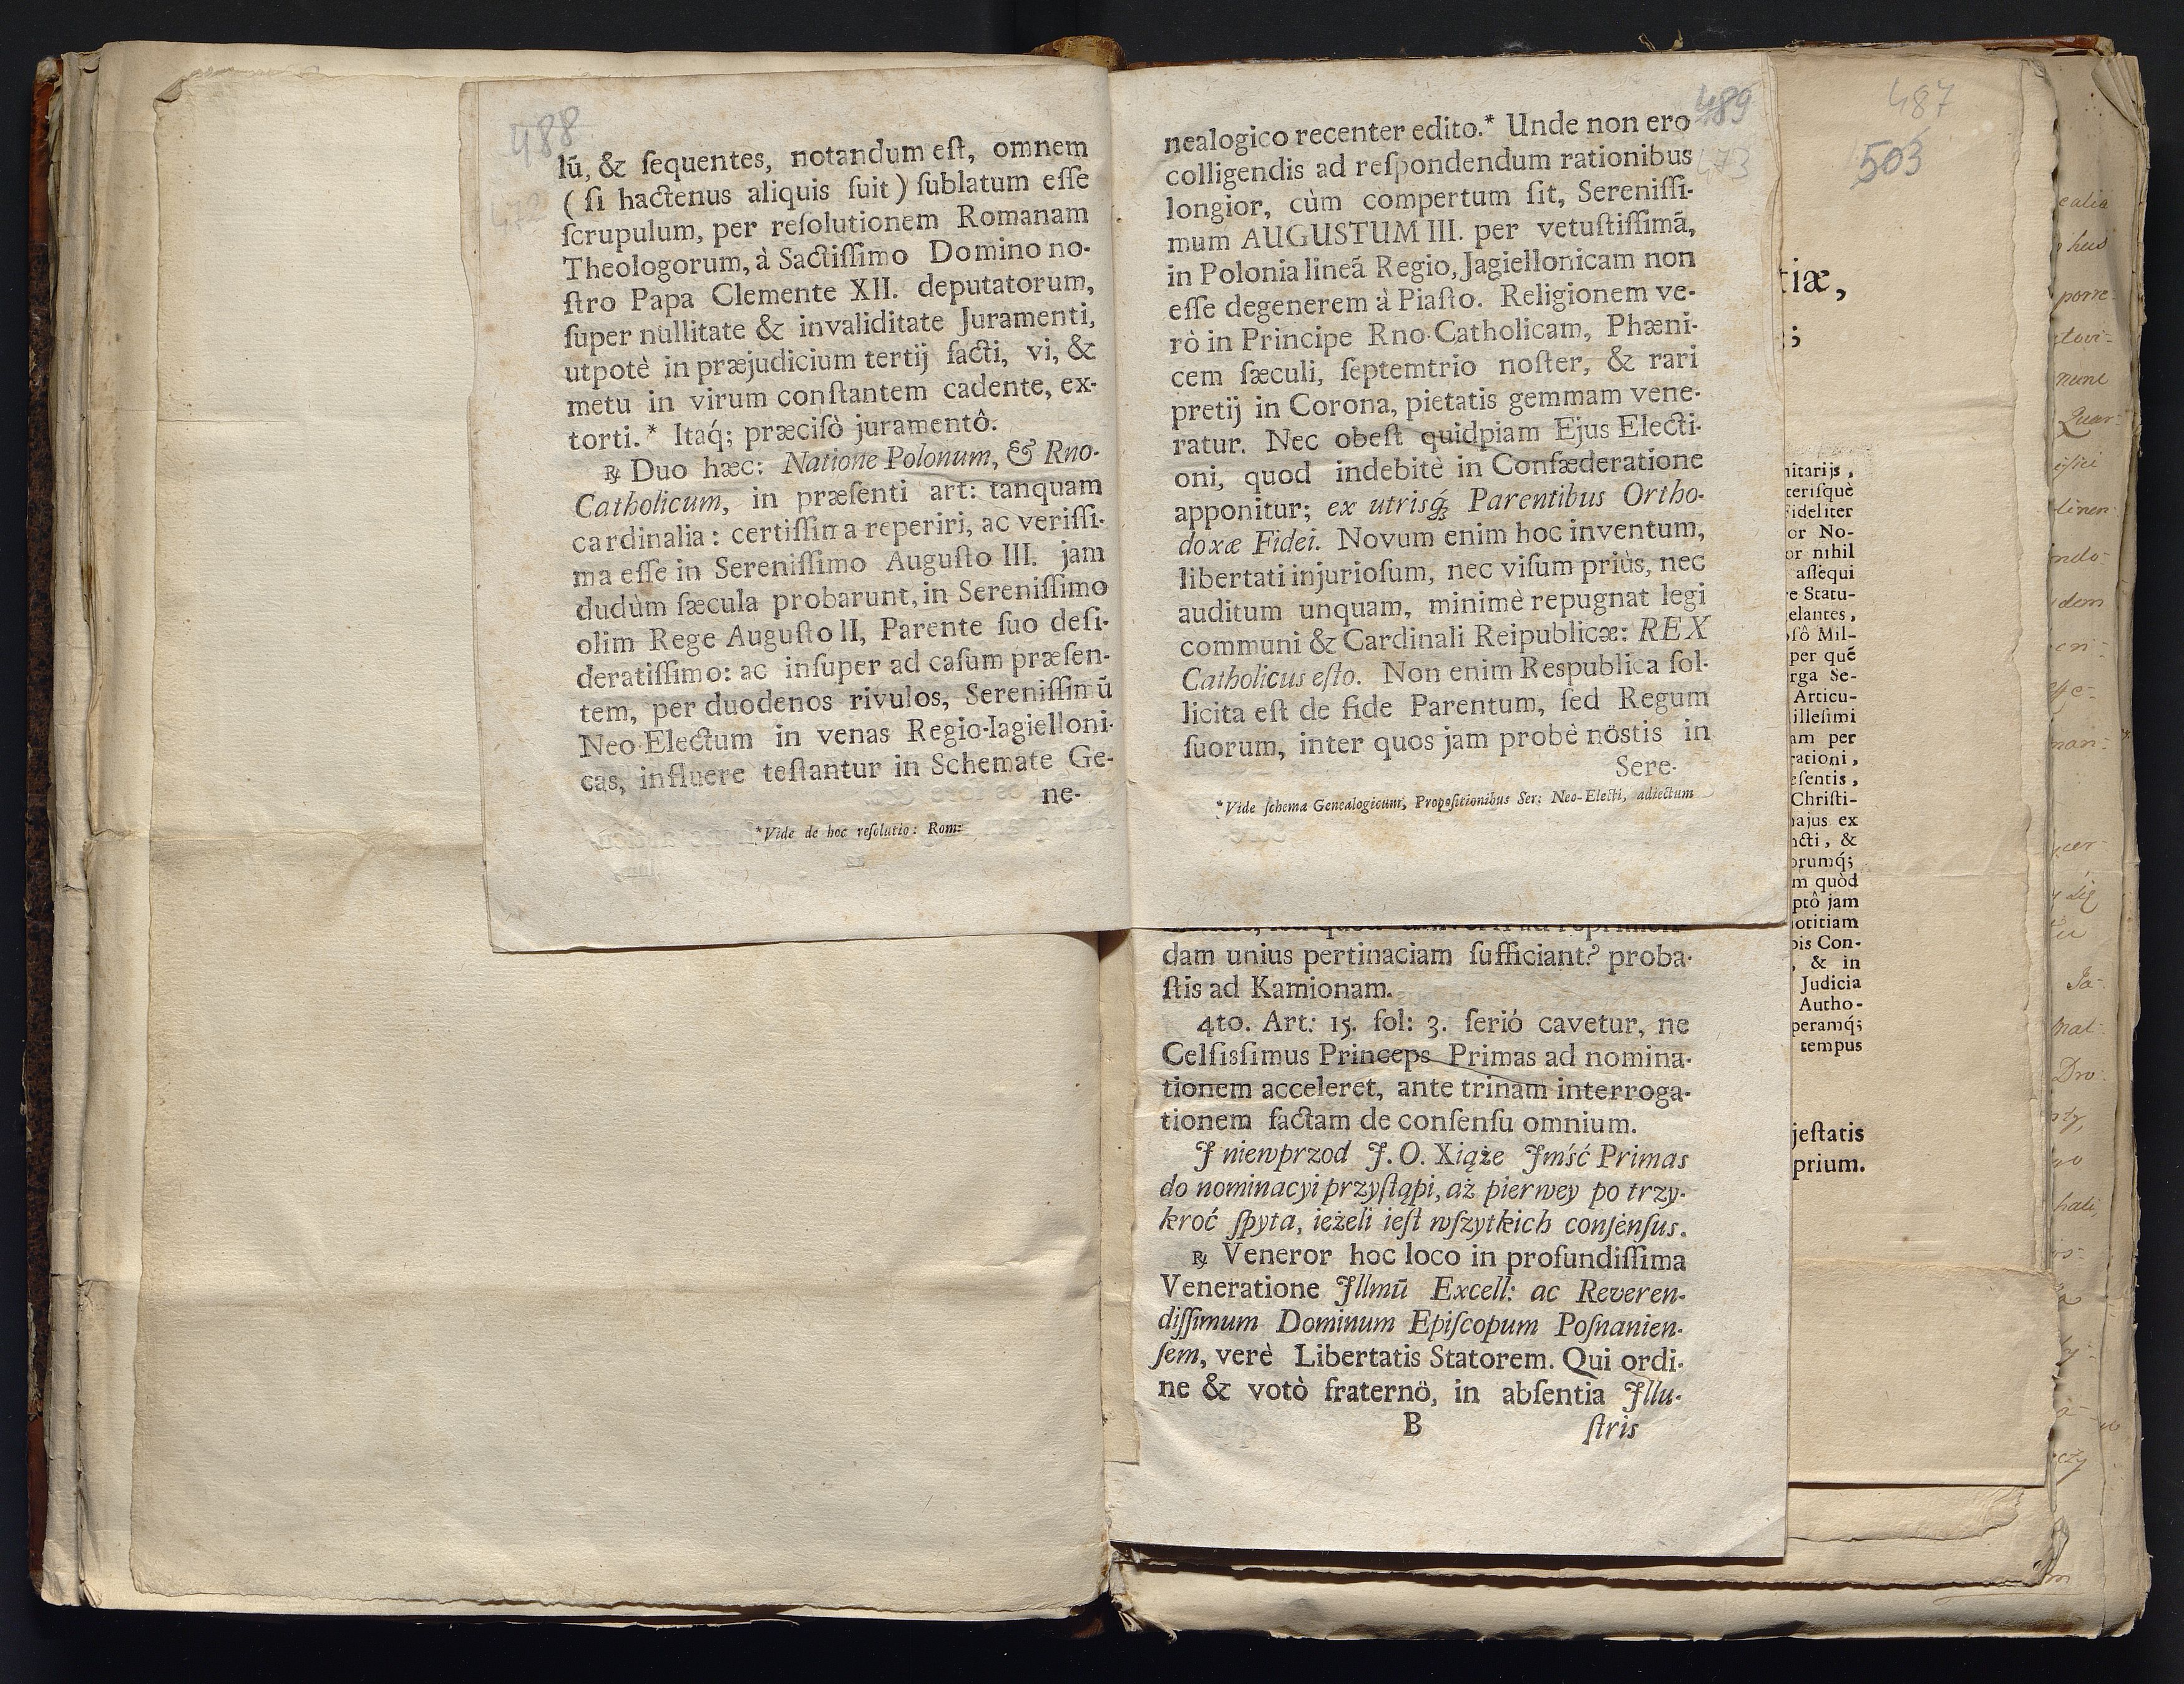 488
472
lũ, & ſequentes, notandum eſt, omnem
(ſi hactenus aliquis fuit) ſublatum eſſe
ſcrupulum, per reſolutionem Romanam
Theologorum, à Sactiſſimo Domino no-
ſtro Papa Clemente XII. deputatorum,
ſuper nullitate & invaliditate Juramenti,
utpotè in præjudicium tertij facti, vi, &
metu in virum conſtantem cadente, ex-
torti.* Itaq́; præciſò juramentô.
℟ Duo hæc: Natione Polonum, & Rno-
Catholicum, in præſenti art: tanquam
cardinalia: certiſſima reperiri, ac veriſſi-
ma eſſe in Sereniſſimo Auguſto III. jam
dudùm ſæcula probarunt, in Sereniſſimo
olim Rege Auguſto II, Parente ſuo deſi-
deratiſſimo: ac inſuper ad caſum præſen-
tem, per duodenos rivulos, Sereniſſimũ
Neo-Electum in venas Regio-Iagielloni-
cas, influere teſtantur in Schemate Ge-
ne-
*Vide de hoc reſolutio: Rom:
489
473
nealogico recenter edito.* Unde non ero
colligendis ad reſpondendum rationibus
longior, cùm compertum ſit, Sereniſſi-
mum AUGUSTUM III. per vetuſtiſſimã,
in Polonia lineã Regio, Jagiellonicam non
eſſe degenerem à Piaſto. Religionem ve-
rò in Principe Rno-Catholicam, Phæni-
cem ſæculi, ſeptemtrio noſter, & rari
pretij in Corona, pietatis gemmam vene-
ratur. Nec obeſt quidpiam Ejus Electi-
oni, quod indebitè in Confæderatione
apponitur; ex utrisq́ꝫ Parentibus Ortho-
doxæ Fidei. Novum enim hoc inventum,
libertati injurioſum, nec viſum priùs, nec
auditum unquam, minimè repugnat legi
communi & Cardinali Reipublicæ: REX
Catholicus eſto. Non enim Reſpublica ſol-
licita eſt de fide Parentum, ſed Regum
ſuorum, inter quos jam probè nöstis in
Sere-
*Vide ſchema Genealogicum, Propoſitionibus Ser: Neo-Electi, adiectum
dam unius pertinaciam ſufficiant? proba-
ſtis ad Kamionam.
4to. Art: 15. fol: 3. ſerió cavetur, ne
Celſisſimus Princeps Primas ad nomina-
tionem acceleret, ante trinam interroga-
tionem factam de conſenſu omnium.
J niewprzod J. O. Xiąże Jmść Primas
do nominacyi przyſtąpi, aż pierwey po trzy-
kroć ſpyta, ieżeli ieſt wſzytkich conſenſus.
℟ Veneror hoc loco in profundiſſima
Veneratione Jllmũ Excell: ac Reveren-
diſſimum Dominum Epiſcopum Poſnanien-
ſem, verè Libertatis Statorem. Qui ordi-
ne & votò fraternö, in abſentia Jllu-
B ſtris
487
503
tiæ,
nitarijs,
teriſquè
Fideliter
or No-
or nihil
aſſequi
e Statu-
elantes,
ſô Mil-
per quẽ
rga Se-
Articu-
illeſimi
am per
rationi,
eſentis,
Chriſti-
najus ex
ncti, &
orumq́;
m quòd
ptô jam
notitiam
bis Con-
, & in
Judicia
Autho-
peramq́;
tempus
jeſtatis
prium.